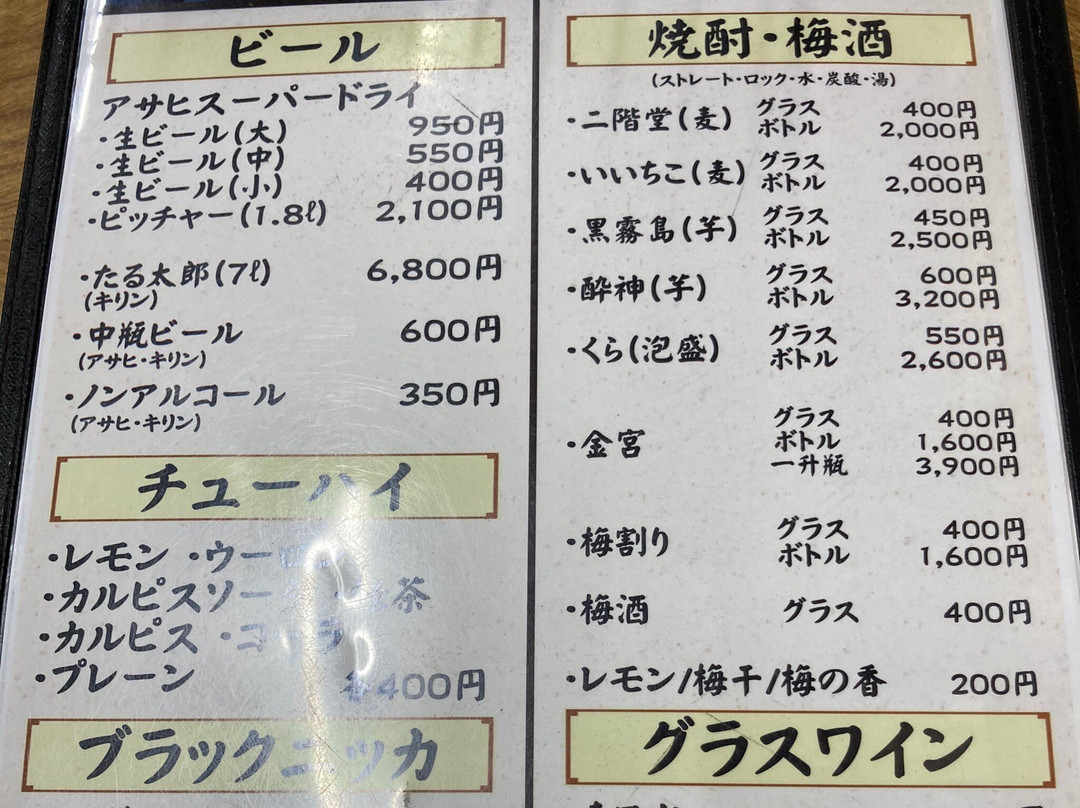 ビール
アサヒスーパードライ
・生ビール(大) 950円
・生ビール(中) 550円
・生ビール(小) 400円
・ピッチャー(1.8ℓ) 2,100円
・たる太郎(7ℓ) 6,800円
(キリン)
・中瓶ビール 600円
(アサヒ・キリン)
・ノンアルコール 350円
(アサヒ・キリン)
チューハイ
・レモン ・ウー
・カルピスソー 茶
・カルピス ・コーラ
・プレーン
各400円
ブラックニッカ
焼酎・梅酒
(ストレート・ロック・水・炭酸・湯)
・二階堂(麦) グラス 400円
ボトル 2,000円
・いいちこ(麦) グラス 400円
ボトル 2,000円
・黒霧島(芋) グラス 450円
ボトル 2,500円
・酔神(芋) グラス 600円
ボトル 3,200円
・くら(泡盛) グラス 550円
ボトル 2,600円
・金宮 グラス 400円
ボトル 1,600円
一升瓶 3,900円
・梅割り グラス 400円
ボトル 1,600円
・梅酒 グラス 400円
・レモン/梅干/梅の香 200円
グラスワイン